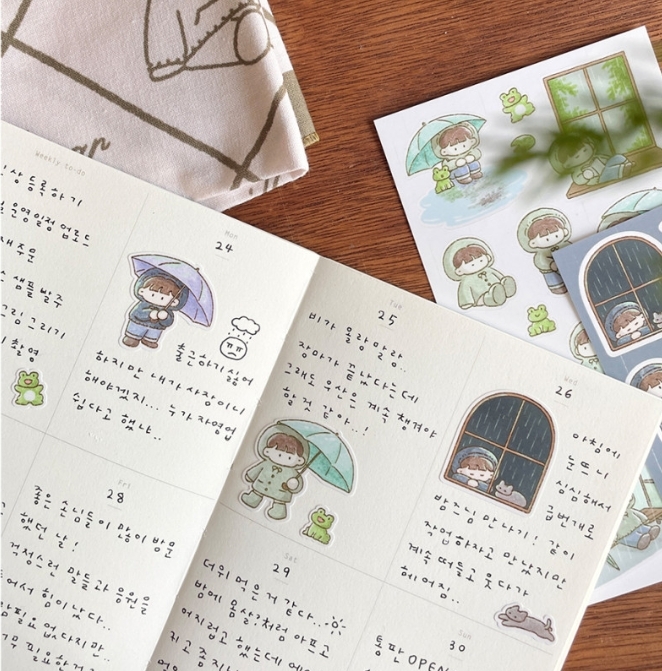 Weekly to-do
상 등록하기
운영일정 업로드
재주문
샘플 발주
그림 그리기
촬영
Mon
24
출근하기 싫어
하지만 내가 사장이니
해야겠지... 누가 자영업
쉽다고 했냐..
Tue
25
비가 올랑말랑..
장마가 끝났다는데
그래도 우산은 계속 챙겨야
할 것 같아..!
Wed
26
아침에
눈뜨니
심심해서
급번개로
밤주님 만나기! 같이
작업하자고 만났지만
계속 떠들고 웃다가
헤어짐..
Fri
28
좋은 손님들이 많이 방문
했던 날!
걱정스런 말들과 응원을
어서 힘이 났다..
필요 없다지만..
필요한 건
Sat
29
더위 먹은 거 같다..
밤에 몸살?처럼 아프고
어지럽고 했는데
지고 좀 지나
Sun
30
통판 OPEN